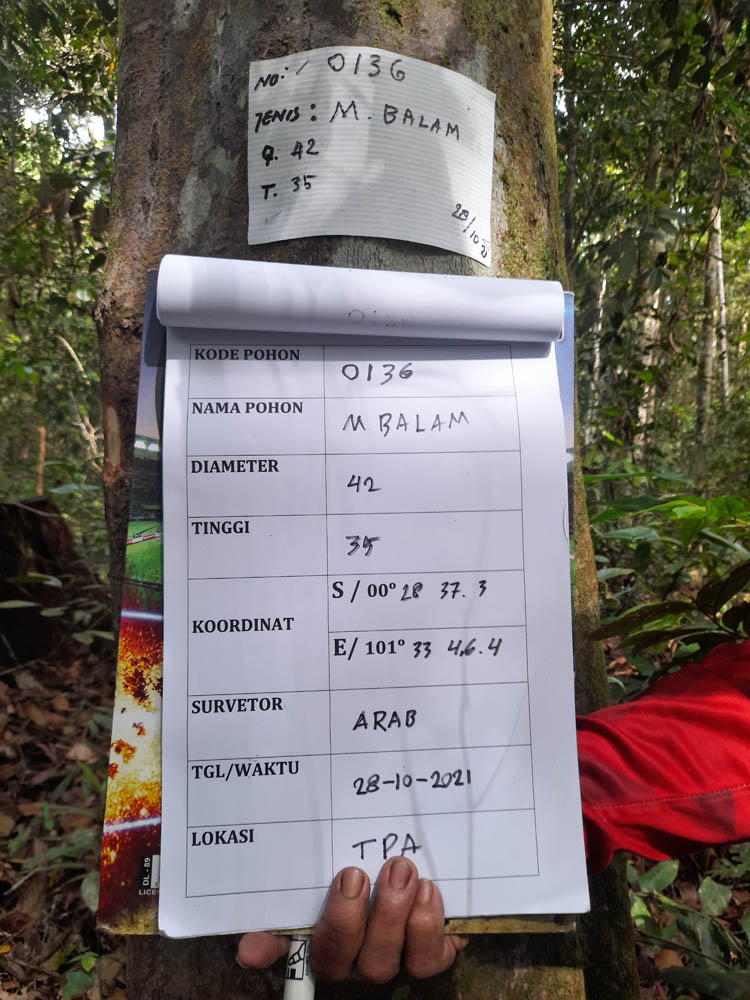 NO: 0136
JENIS: M. BALAM
Q. 42
T. 35
28/10 21
KODE POHON 0136
NAMA POHON M BALAM
DIAMETER 42
TINGGI 35
KOORDINAT S / 00° 28 37. 3
E/ 101° 33 46. 4
SURVETOR ARAB
TGL/WAKTU 28-10-2021
LOKASI TPA
DL - 89